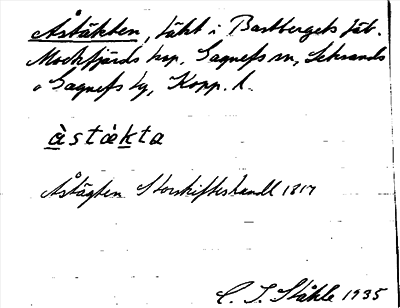 Åståkten, täkt i Bastbergets fäb.
Mockfjärds kap. Gagnefs sn, Leksands
o Gagnefs tg, Kopp. l.
Åstägten Storskifteshandl 1817
C. I. Ståhle 1935